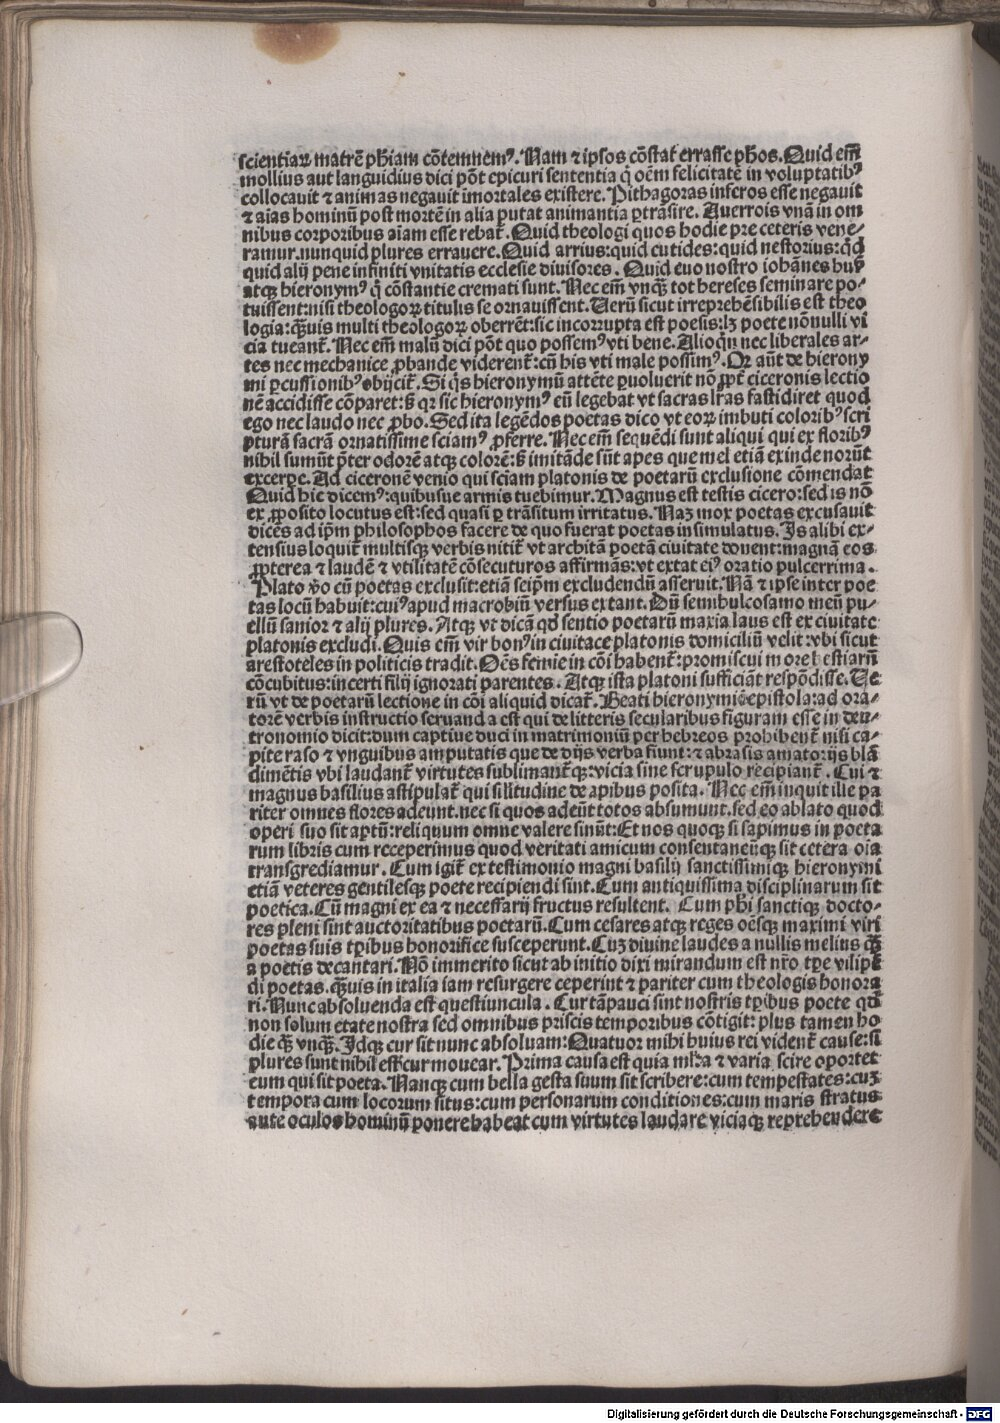 scientiaꝝ matrē ph̄iam cōtemnemꝰ. Nam ⁊ ipsos cōstat errasse ph̄os. Quid em̄
mollius aut languidius dici pōt epicuri sententia q̇ oēm felicitatē in voluptatibꝰ
collocauit ⁊ animas negauit īmortales existere. Pithagoras inferos esse negauit
⁊ aīas hominū post mortē in alia putat animantia ꝑtrāsire. Auerrois vnā in om
nibus corporibus aīam esse rebat̄. Quid theologi quos hodie pre ceteris vene⸗
ramur. nunquid plures errauere. Quid arrius: quid eutides: quid nestorius: qd̄
quid alij pene infiniti vnitatis ecclesie diuisores. Quid euo nostro iohānes huß
atqꝫ hieronymꝰ q̇ cōstantie cremati sunt. Nec em̄ vnqꝫ̄ tot hereses seminare po⸗
tuissent: nisi theologoꝝ titulis se ornauissent. Uerū sicut irreprehēsibilis est theo
logia: qꝫ̄uis multi theologoꝝ oberrēt: sic incorrupta est poesis: lꝫ poete nōnulli vi
cia tueant̄. Nec em̄ malū dici pōt quo possemꝰ vti bene. Alioqn̄ nec liberales ar⸗
tes nec mechanice ꝓbande viderent̄: cū his vti male possimꝰ. Qꝛ aūt de hierony
mi ꝑcussionibꝰ obijcit̄. Si q̇s hieronymū attēte ꝑuoluerit nō ꝓpt̄ ciceronis lectio
nē accidisse cōparet: ß qꝛ sic hieronymꝰ eū legebat vt sacras lr̄as fastidiret quod
ego nec laudo nec ꝓbo. Sed ita legēdos poetas dico vt eoꝝ imbuti coloribꝰ scri
pturā sacrā ornatissime sciamꝰ ꝓferre. Nec em̄ sequēdi sunt aliqui qui ex floribꝰ
nihil sumūt p̄ter odorē atqꝫ colorē: ß imitāde sūt apes que mel etiā exinde norūt
excerpe. Ad ciceronē venio qui sciam platonis de poetarū exclusione cōmendat
Quid hic dicemꝰ: quibusue armis tuebimur. Magnus est testis cicero: sed is nō
ex ꝓposito locutus est: sed quasi ꝑ trāsitum irritatus. Naꝫ mox poetas excusauit
dicēs ad ip̄m philosophos facere de quo fuerat poetas insimulatus. Is alibi ex⸗
tensius loquit̄ multisqꝫ verbis nitit̄ vt architā poetā ciuitate donent: magnā eos
ꝓpterea ⁊ laudē ⁊ vtilitatē cōsecuturos affirmās: vt extat eiꝰ oratio pulcerrima.
Plato v̄o cū poetas exclusit: etiā seip̄m excludendū asseruit. Nā ⁊ ipse inter poe
tas locū habuit: cuiꝰ apud macrobiū versus extant. Dū semihulco sauio meū pu⸗
ellū sanior ⁊ alij plures. Atqꝫ vt dicā qd̄ sentio poetarū maxīa laus est ex ciuitate
platonis excludi. Quis em̄ vir bonꝰ in ciuitate platonis domiciliū velit: vbi sicut
arestoteles in politicis tradit. Oēs femīe in cōi habent̄: promiscui more bestiarū
cōcubitus: incerti filij ignorati parentes. Atqꝫ ista platoni sufficiāt respōdisse. Ue
rū vt de poetarū lectione in cōi aliquid dicat̄. Beati hieronymi ē epistola: ad ora⸗
torē verbis instructio seruanda est qui de litteris secularibus figuram esse in deu⸗
tronomio dicit: dum captiue duci in matrimoniū per hebreos prohibent̄ nisi ca⸗
pite raso ⁊ vnguibus amputatis que de dijs verba fiunt: ⁊ abrasis amatorijs blā
dimētis vbi laudant̄ virtutes sublimant̄qꝫ: vicia sine scrupulo recipiant̄. Cui ⁊
magnus basilius astipulat̄ qui silitudine de apibus posita. Nec em̄ inquit ille pa
riter omnes flores adeunt. nec si quos adeūt totos absumunt. sed eo ablato quod
operi suo sit aptū: reliquum omne valere sinūt: Et nos quoqꝫ si sapimus in poeta
rum libris cum receperimus quod veritati amicum consentaneūqꝫ sit cetera oīa
transgrediamur. Cum igit̄ ex testimonio magni basilij sanctissimiqꝫ hieronymi
etiā veteres gentilesqꝫ poete recipiendi sint. Cum antiquissima disciplinarum sit
poetica. Cū magni ex ea ⁊ necessarij fructus resultent. Cum ph̄i sanctiqꝫ docto⸗
res pleni sint auctoritatibus poetarū. Cum cesares atqꝫ reges oēsqꝫ maximi viri
poetas suis tꝑibus honorifice susceperunt. Cuꝫ diuine laudes a nullis melius qꝫ̄
a poetis decantari. Nō immerito sicut ab initio dixi mirandum est nr̄o tꝑe vilipē
di poetas. qꝫ̄uis in italia iam resurgere ceperint ⁊ pariter cum theologis honora
ri. Nunc absoluenda est questiuncula. Cur tā pauci sint nostris tꝑibus poete qd̄
non solum etate nostra sed omnibus priscis temporibus cōtigit: plus tamen ho
die qꝫ̄ vnqꝫ̄. Idqꝫ cur sit nunc absoluam: Quatuor mihi huius rei vident̄ cause: si
plures sunt nihil est cur mouear. Prima causa est quia ml̄ta ⁊ varia scire oportet
eum qui sit poeta. Nanqꝫ cum bella gesta suum sit scribere: cum tempestates: cuꝫ
tempora cum locorum situs: cum personarum conditiones: cum maris stratus
ante oculos hominū ponere habeat cum virtutes laudare viciaqꝫ reprehendere
Digitalisierung gefördert durch die Deutsche Forschungsgemeinschaft - DFG